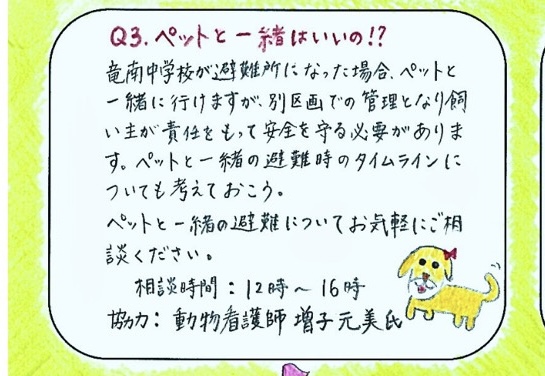 Q3. ペットと一緒はいいの!?
竜南中学校が避難所になった場合、ペットと
一緒に行けますが、別区画での管理となり飼
い主が責任をもって安全を守る必要がありま
す。ペットと一緒の避難時のタイムラインに
ついても考えておこう。
ペットと一緒の避難についてお気軽にご相
談ください。
相談時間：12時～16時
協力：動物看護師 増子元美氏